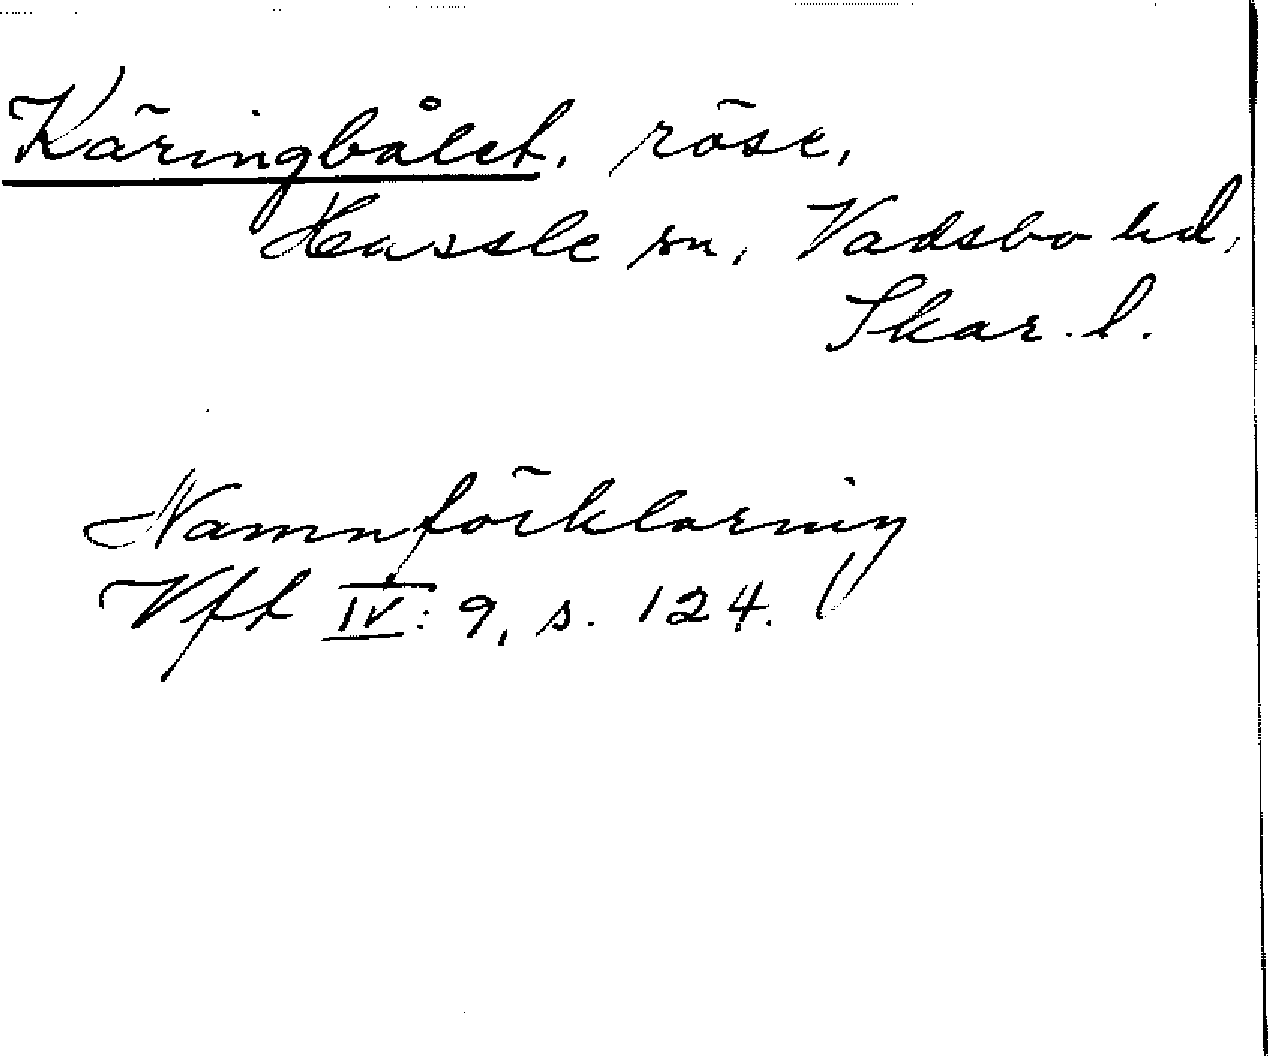 Käringbålet, röse,
Hassle sn, Vadsbo hd,
Skar. l.
Namnförklaring
Vft IV: 9, s. 124.